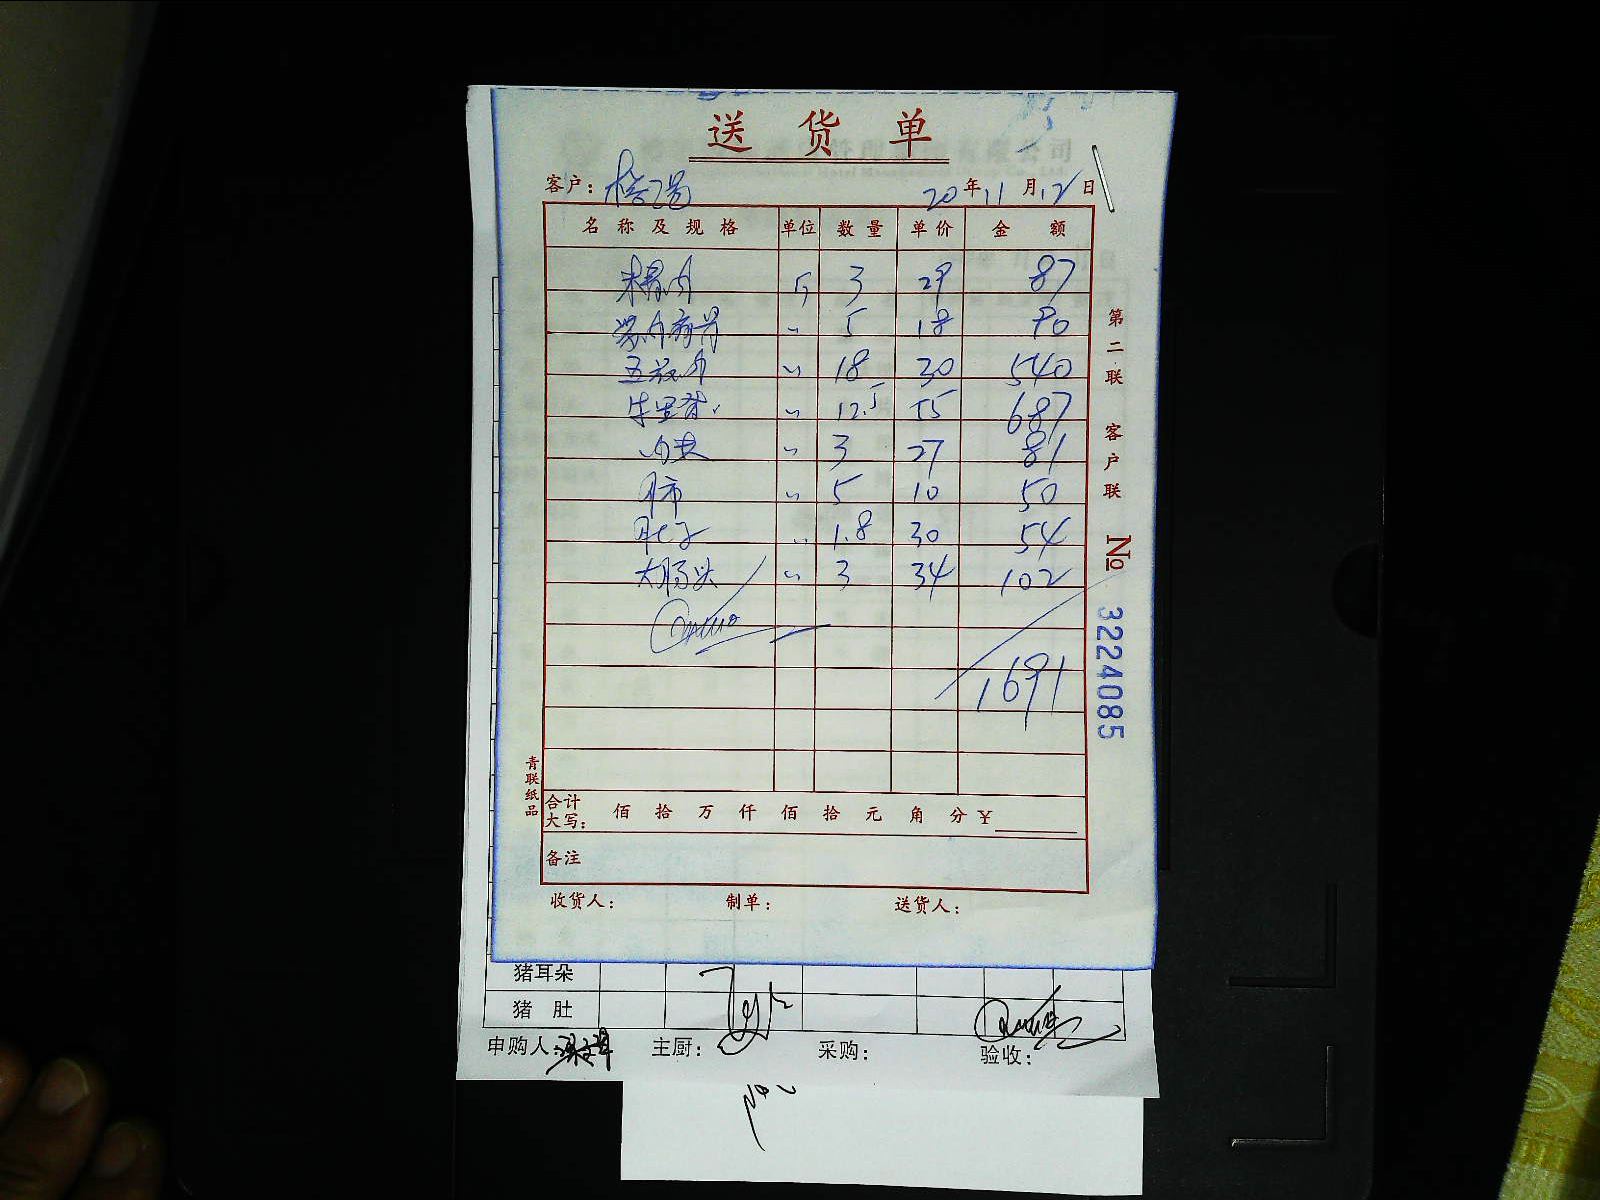 送货单
客户： 20年11月12日
名称及规格 单位 数量 单价 金额
斤 3 29 87
〃 5 18 90
五花肉 〃 18 30 540
牛里脊 〃 12.5 55 687
〃 3 27 81
肺 〃 5 10 50
肚子 〃 1.8 30 54
大肠头 〃 3 34 102
1691
合计大写： 佰 拾 万 仟 佰 拾 元 角 分 ¥
备注
收货人： 制单： 送货人：
第二联 客户联 No 3224085
青联纸品
猪耳朵
猪肚
申购人： 主厨： 采购： 验收：